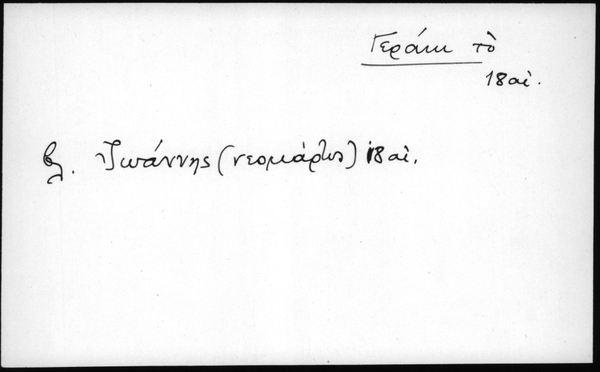 Γεράκι τὸ
18 αἰ.
βλ. Ἰωάννης (νεομάρτυς) 18 αἰ.